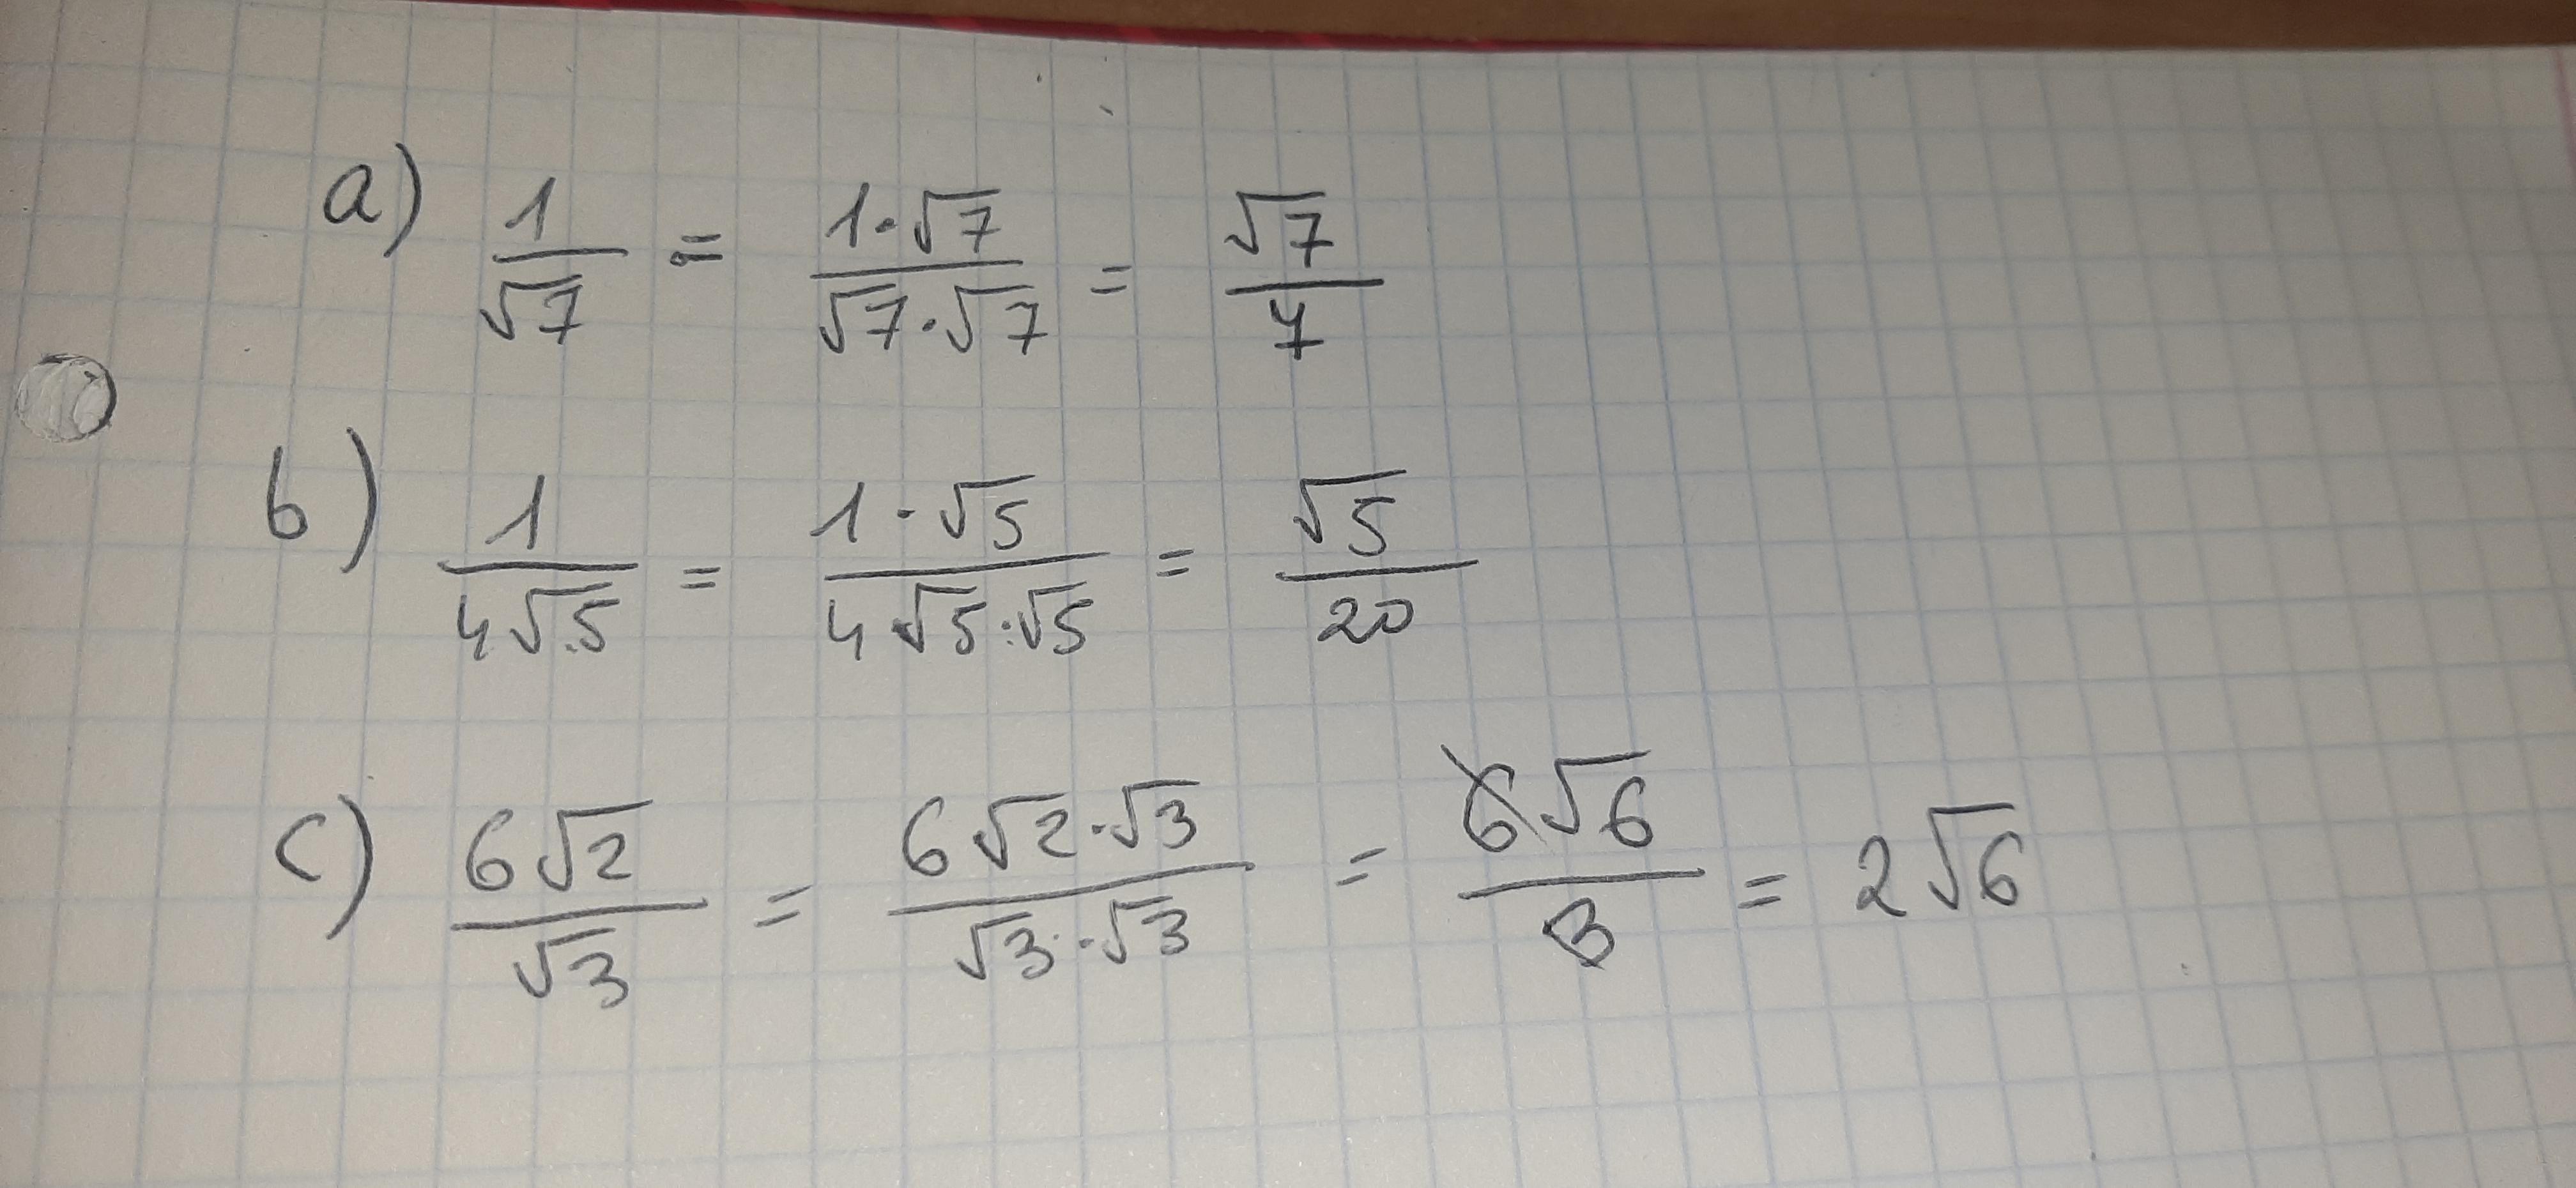 a) 1/√7 = 1·√7/√7·√7 = √7/7
b) 1/4√5 = 1·√5/4√5·√5 = √5/20
c) 6√2/√3 = 6√2·√3/√3·√3 = 6√6/3 = 2√6